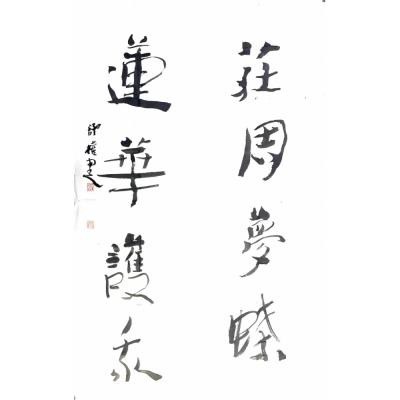 莊周夢蝶
蓮華護我